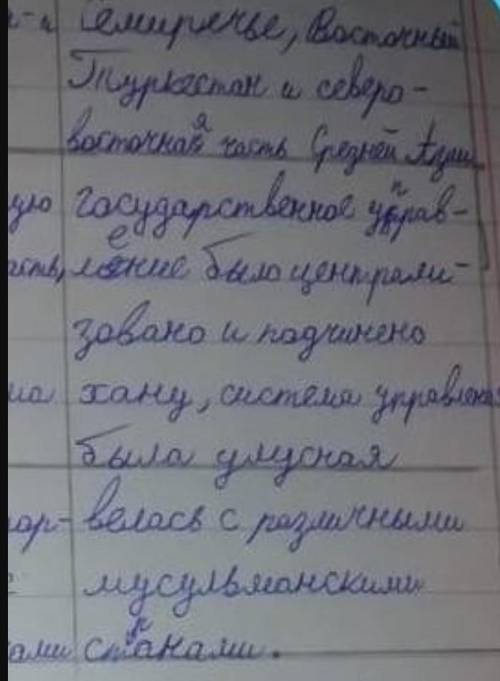 Семиречье, Восточный
Туркестан и северо-
восточная часть Средней Азии.
государственное управ-
ление было централи-
зовано и подчинено
хану, система управления
была улусная
велась с различными
мусульманскими
странами.